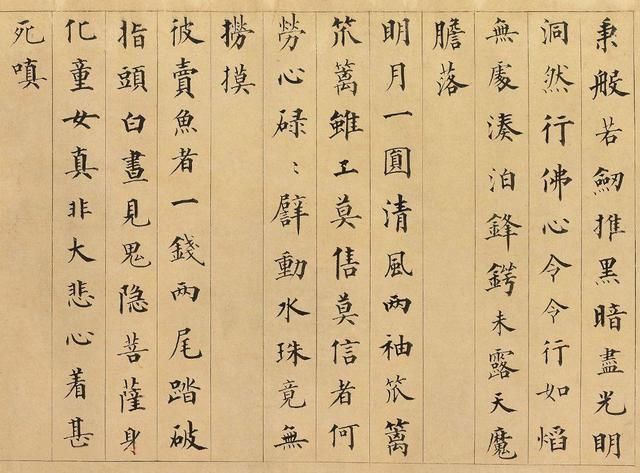 秉般若劒推黑暗盡光明
洞然行佛心令令行如熖
無處湊泊鋒鍔未露天魔
膽落
明月一圓清風兩袖笊篱
笊篱雖工莫售莫信者何
勞心碌〻動水珠竟無
撈摸
彼賣魚者一錢兩尾踏破
指頭白晝見鬼隐菩薩身
化童女真非大悲心着甚
死嗔